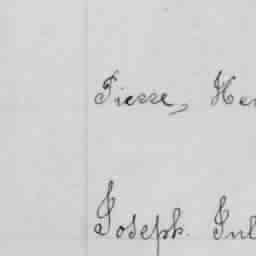 Pierre, Hen
Joseph. Jul